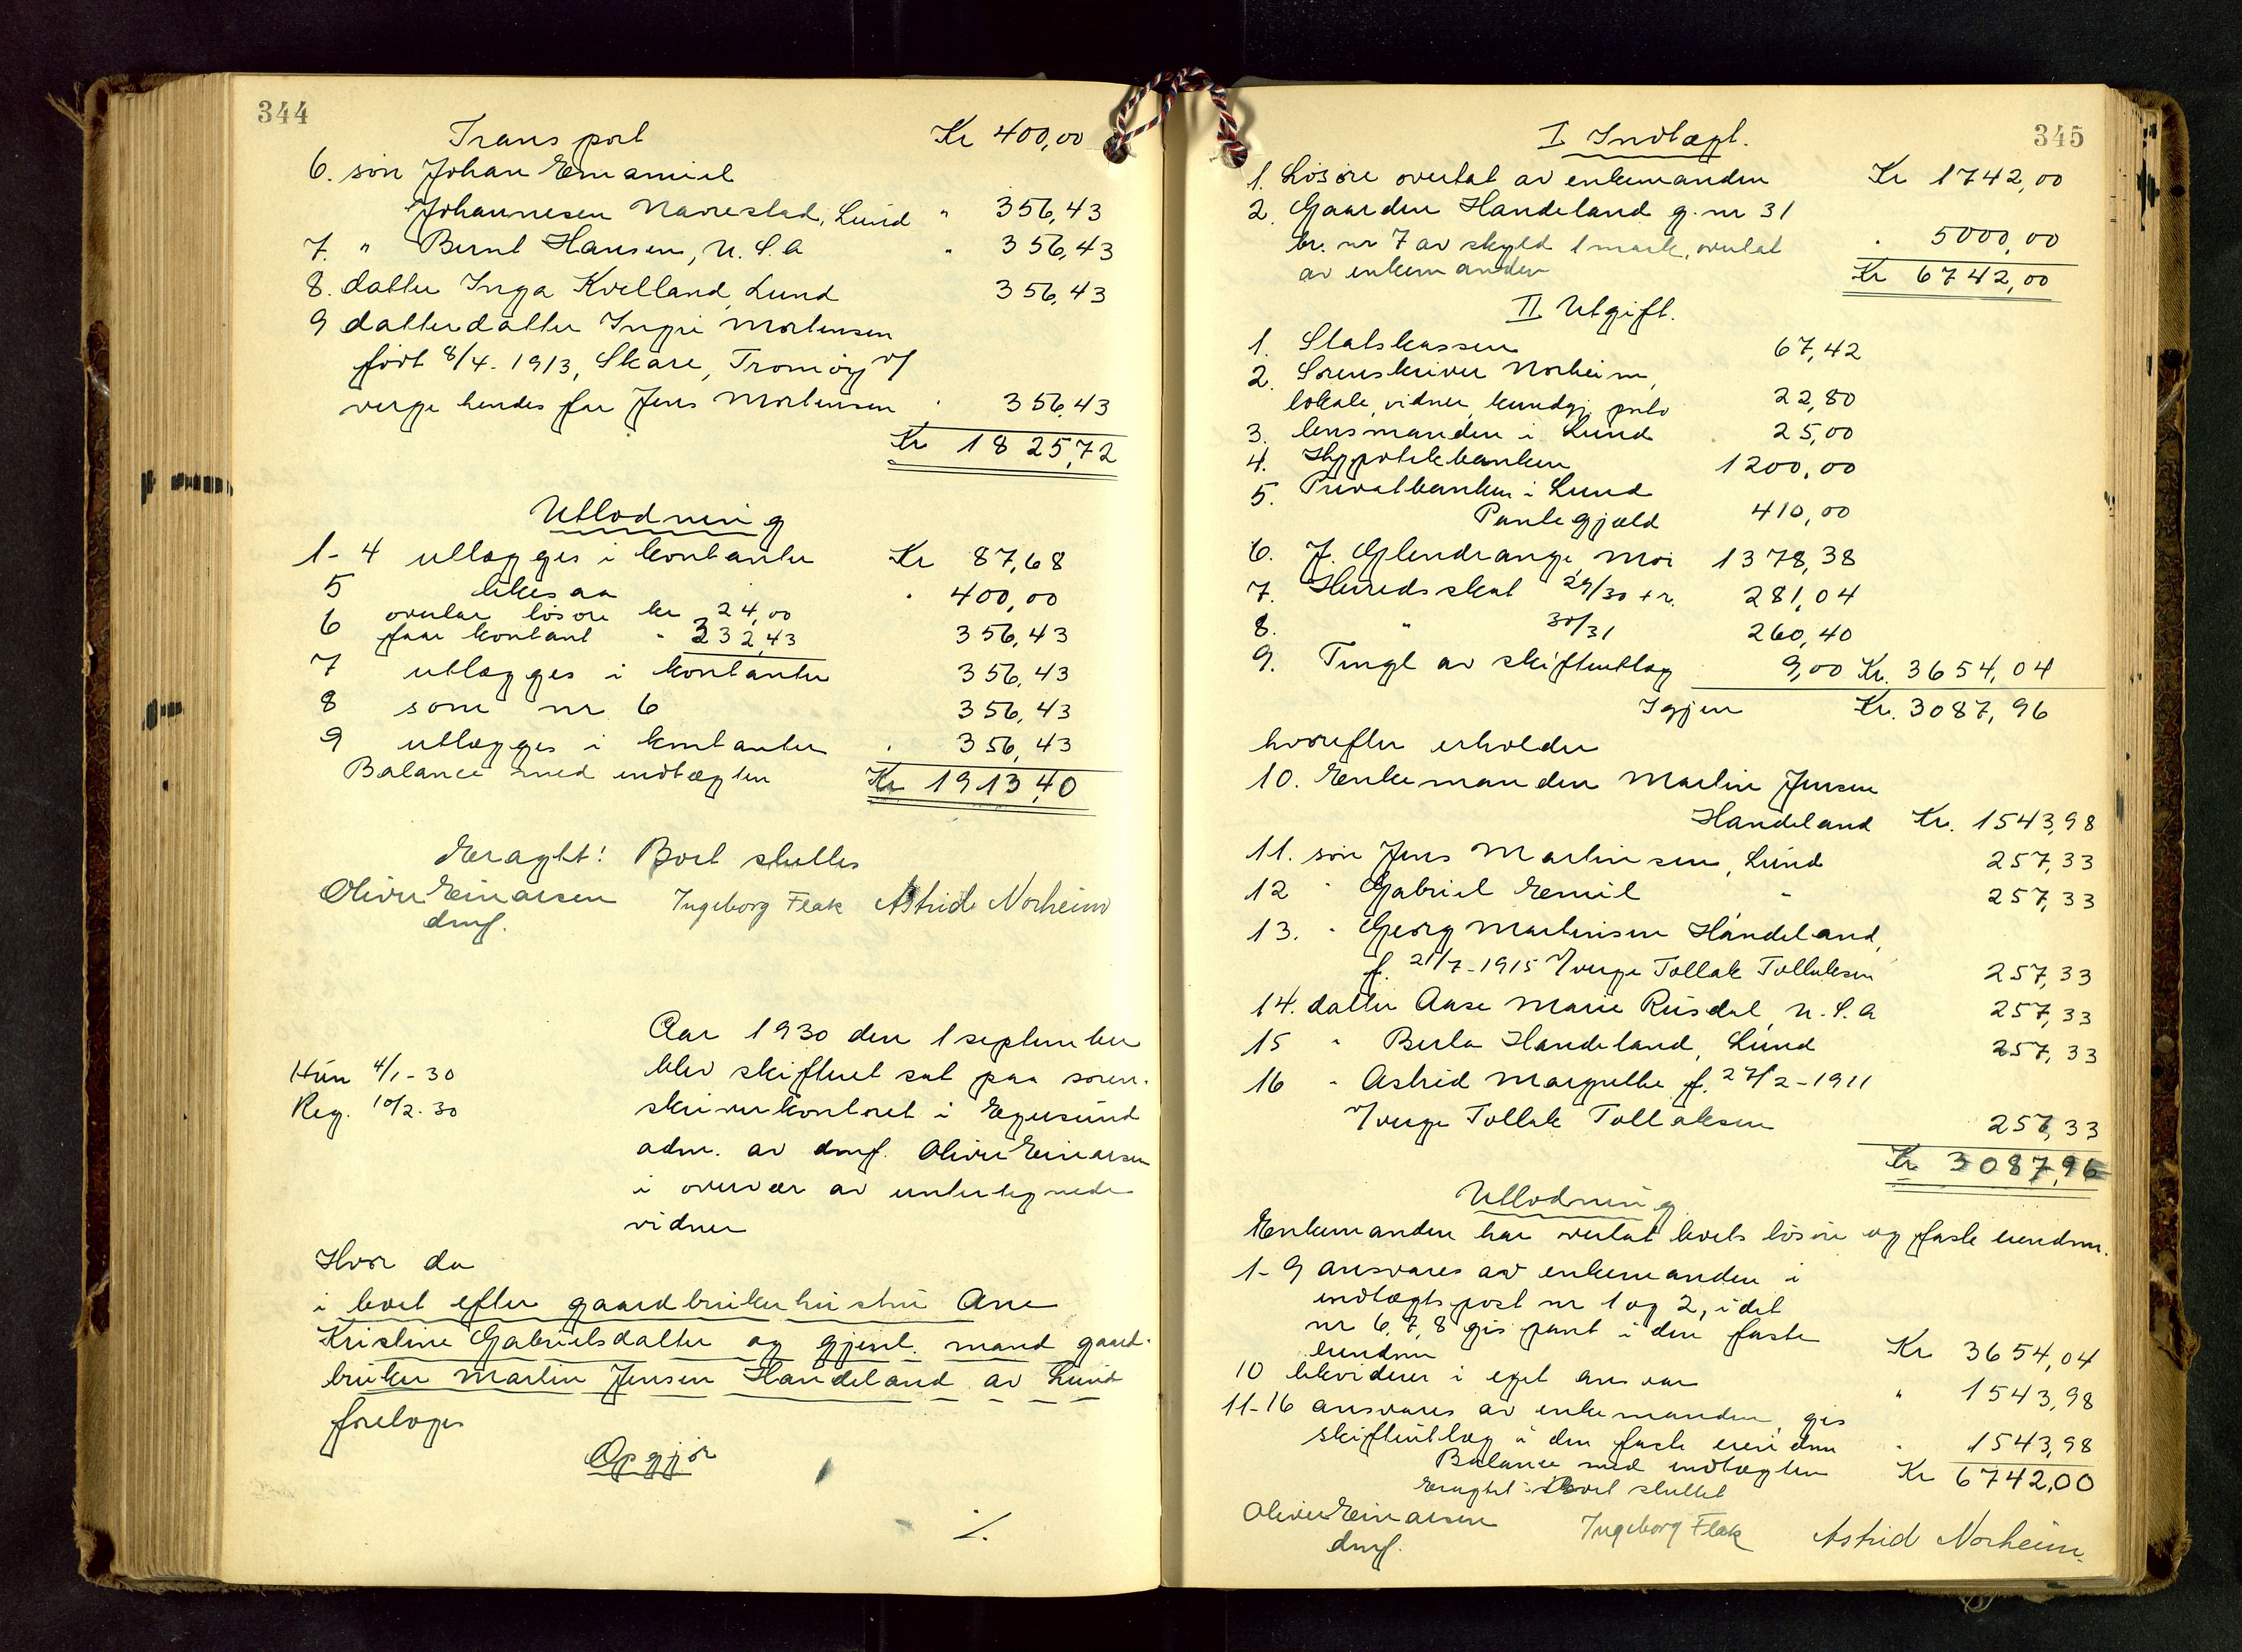 344
Transport Kr 400,00
6. søn Johan Emaniel
Johannesen Navrestad, Lund " 356,43
7. " Bernt Hansen, U.S.A " 356,43
8. datter Inga Kvelland, Lund 356,43
9 datterdatter Ingri Mortensen
født 8/4-1913, Skare, Tromöy v/
verge hendes far Jens Mortensen " 356,43
Kr 1825,72
Utlodning
1-4 utlægges i kontanter Kr 87,68
5 likesaa " 400,00
6 overtar løsøre kr 24,00
faar kontant " 332,43 356,43
7 utlægges i kontanter 356,43
8 som nr 6 356,43
9 utlægges i kontanter " 356,43
Balance med indtægten Kr 1913,40
Eragtet: Boet sluttes
Oliver Einarsen Ingeborg Flak Astrid Norheim
dmf.
Aar 1930 den 1 september
Hun 4/1-30 blev skifteret sat paa soren-
Reg. 10/2-30 skriverkontoret i Egersund
adm. av dmf. Oliver Einarsen
i overvær av undertegnede
vidner
Hvor da
i boet efter gaardbrukerhustru Ane
Kristine Gabrielsdatter og gjenl. mand gaard-
bruker Martin Jensen Handeland av Lund
foretoges
Opgjør
./.
345
I Indtægt.
1. Løsøre overtat av enkemanden Kr 1742,00
2. Gaarden Handeland g.nr 31
br. nr 7 av skyld 1 mark, overtat " 5000,00
av enkemanden Kr 6742,00
II Utgift.
1. Statskassen 67,42
2. Sorenskriver Norheim,
lokale, vidner, kundgj. porto 22,80
3. lensmanden i Lund . 25,00
4. Hypotekbanken 1200,00
5. Privatbanken i Lund
Pantegjæld 410,00
6. J. Glendrange, Moi 1378,38
7. Heredsskat 29/30 + r. 281,04
8. " 30/31 260,40
9. Tingl av skifteutlæg 9,00 Kr. 3654,04
Igjen Kr. 3087,96
hvorefter erholder
10. Enkemanden Martin Jensen
Handeland Kr. 1543,98
11. søn Jens Martinsen, Lund 257,33
12 " Gabriel Emil " 257,33
13. " Georg Martinsen Handeland,
f. 21/7-1915 v/verge Tollak Tollaksen 257,33
14. datter Aase Marie Rusdal, U.S.A 257,33
15 " Berta Handeland, Lund 257,33
16 " Astrid Margrethe f. 27/2-1911
v/verge Tollak Tollaksen 257,33
Kr 3087,96
Utlodning
Enkemanden har overtat boets løsøre og faste eiendom.
1-9 ansvares av enkemanden i
indtægtspost nr 1 og 2, idet
nr 6, 7, 8 gis pant i den faste
eiendom Kr 3654,04
10 likviderer i eget ansvar " 1543,98
11-16 ansvares av enkemanden, gis
skifteutlæg i den faste eiendom " 1543,98
Balance med indtægten Kr 6742,00
Eragtet: Boet sluttet
Oliver Einarsen Ingeborg Flak Astrid Norheim
dmf.